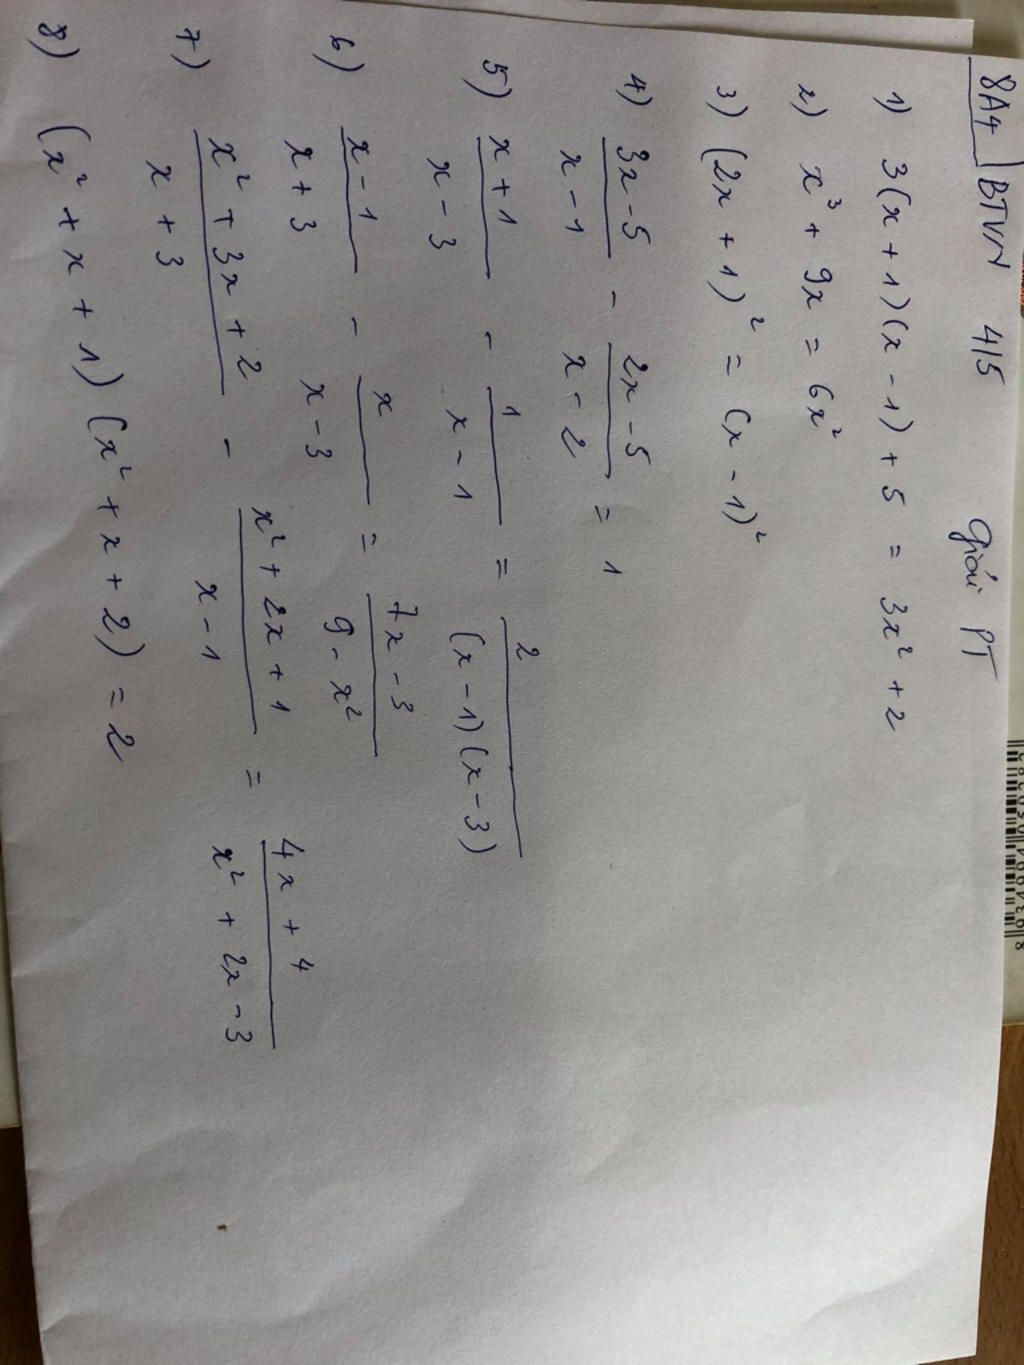 8A4 BTVN 4/5 Giải PT
1) 3(x + 1)(x - 1) + 5 = 3x² + 2
2) x³ + 9x = 6x²
3) (2x + 1)² = (x - 1)²
4) (3x - 5)/(x - 1) - (2x - 5)/(x - 2) = 1
5) (x + 1)/(x - 3) - 1/(x - 1) = 2/((x - 1)(x - 3))
6) (x - 1)/(x + 3) - x/(x - 3) = (7x - 3)/(9 - x²)
7) (x² + 3x + 2)/(x + 3) - (x² + 2x + 1)/(x - 1) = (4x + 4)/(x² + 2x - 3)
8) (x² + x + 1)(x² + x + 2) = 2